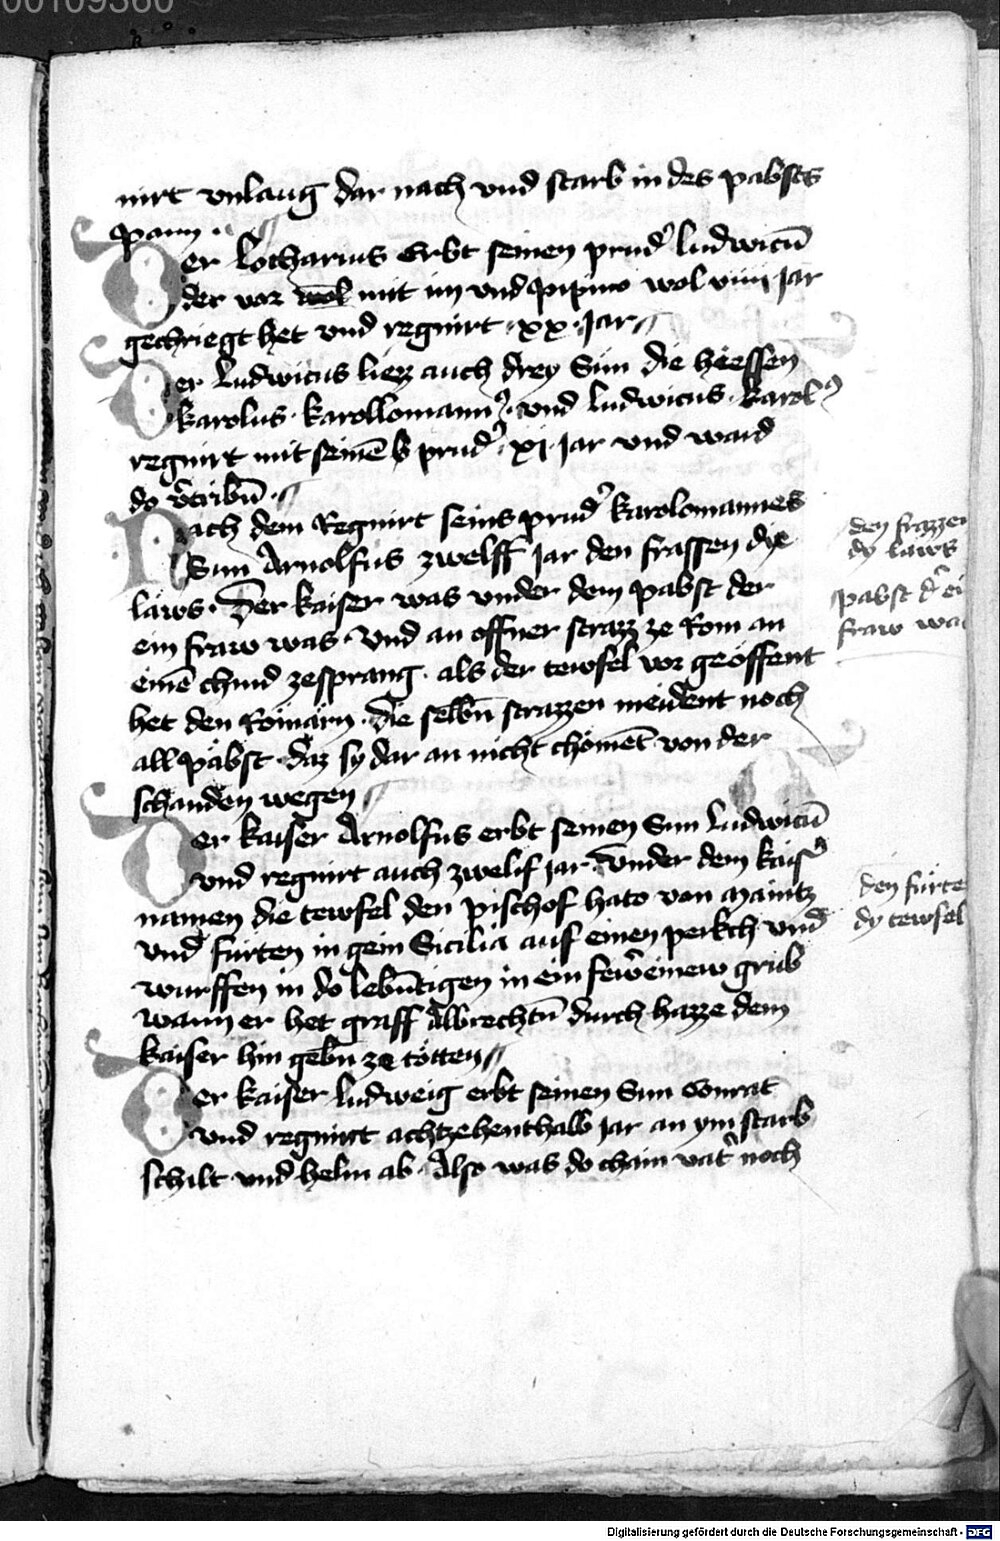 00109360
nirt vnlang dar nach vnd starb in des pabsts
pann
Der Lotharius erbt seinen prud' ludwicū
der vor wol mit im vnd pipino wol viiii jar
gechriegt het vnd regnirt · xx · jar
Der ludwicus liezz auch drey Sün die hiessen
karolus · karollomann9 · vnd ludwicus · karol9
regnirt mit seinē prud' · xj · jar vnd ward
do v'tribū
Nach dem Regnirt seins prud' karolomannes
Sun Arnolfus zwelff jar den frassen dye
läws · Der kaiser was vnder dem pabst der
ein fraw was · vnd an offner strazz ze Rom an
einē chind zesprang · als der tewfel vor geöffent
het den Römärn · die selbn̄ strazzen meident noch
all päbst · daz sy dar an nicht chömēt von der
schanden wegen
Der kaiser Arnolfus erbt seinen Sun Ludwicū
vnd regnirt auch zwelif jar · vnder dem kais'
namen die tewfel den pischof hato von maintz
vnd fürten in gein Sicilia auf einen perkch vnd
wurffen in do lebn̄tigen in ein fewreinew grüb
wann er het graff Albrechtn̄ durch hazze dem
kaiser hin gebn̄ ze tötten
Der kaiser ludweig erbt seinen Sun Conrat
vnd regnirt achtzehenthalb jar an ym starb
schilt vnd helm ab · Also was do chain vat' noch
den frazzen
dy läws
pabst d' ei
fraw wa
den fürte
dy tewfel
Digitalisierung gefördert durch die Deutsche Forschungsgemeinschaft - DFG